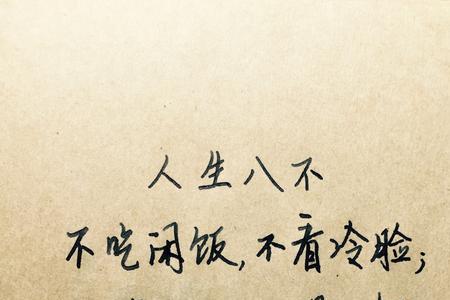 人生八不
不吃闲饭,不看冷脸;